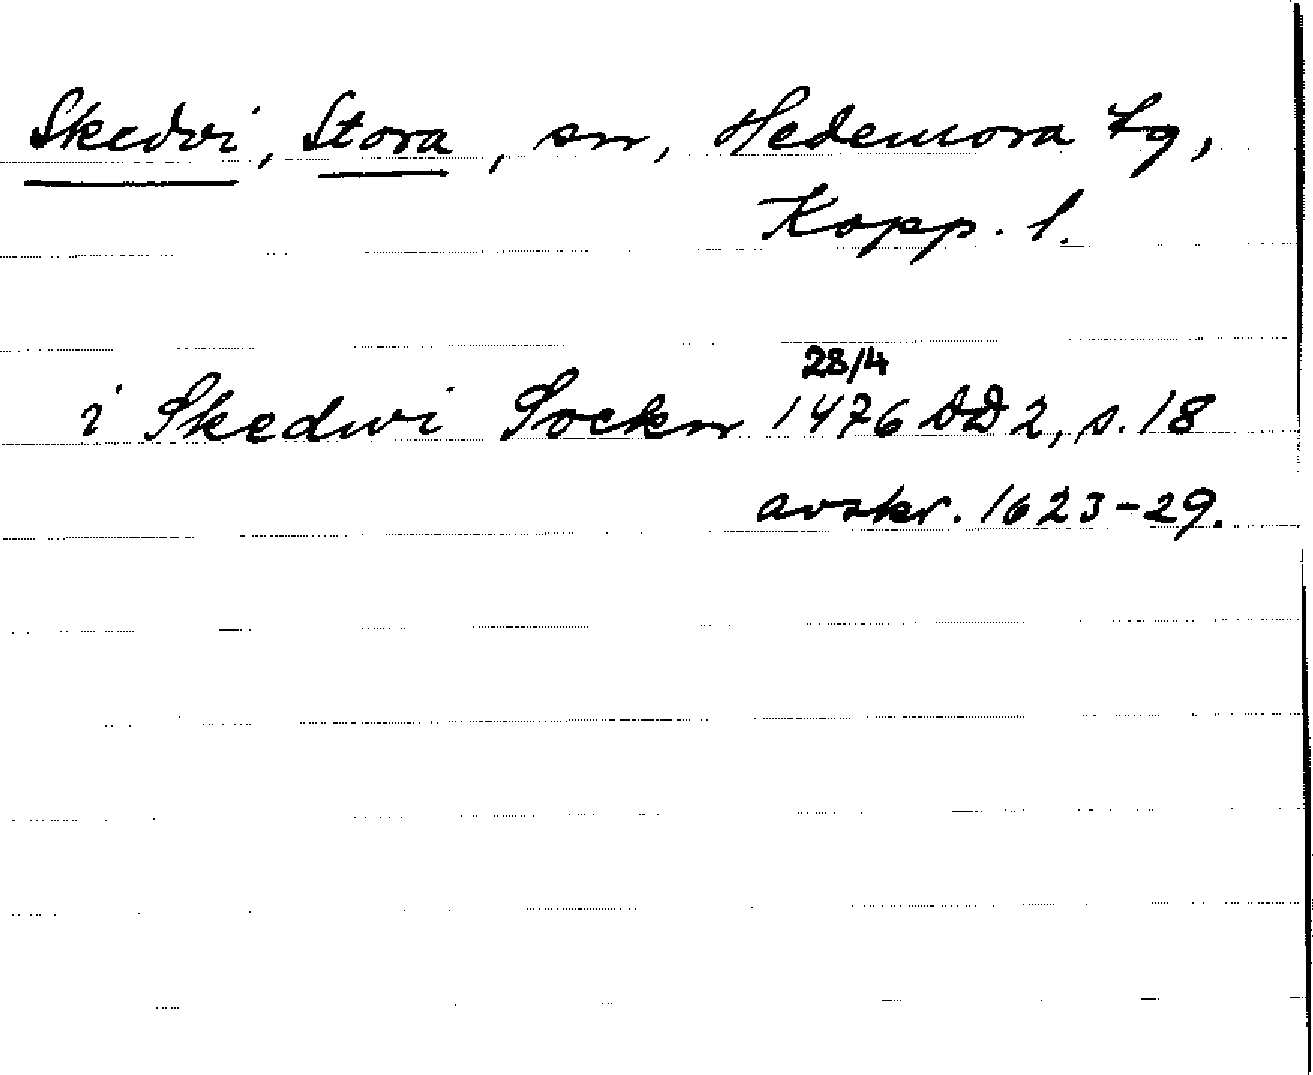 Skedvi, Stora, sn, Hedemora tg,
Kopp. l.
28/4
i Skedwi Sockn 1476 DD 2, s. 18
avskr. 1623-29.